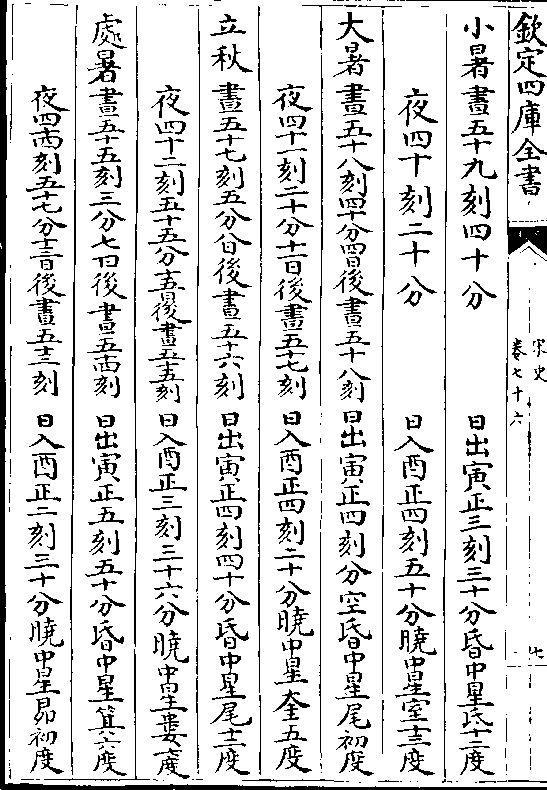 欽定四庫全書
宋史
卷七十六
七
小暑晝五十九刻四十分 日出寅正三刻三十分昏中星氐十二度
夜四十刻二十分 日入酉正四刻五十分曉中星室十三度
大暑晝五十八刻四十分四日後晝五十八刻 日出寅正四刻分空昏中星尾初度
夜四十一刻二十分十一日後晝五十七刻 日入酉正四刻二十分曉中星奎五度
立秋晝五十七刻五分八日後晝五十六刻 日出寅正四刻四十分昏中星尾十二度
夜四十二刻五十五分十五日後晝五十五刻 日入酉正三刻三十六分曉中星婁八度
處暑晝五十五刻三分七日後晝五十四刻 日出寅正五刻五十分昏中星箕六度
夜四十四刻五十七分十三日後晝五十三刻 日入酉正二刻三十分曉中星昴初度